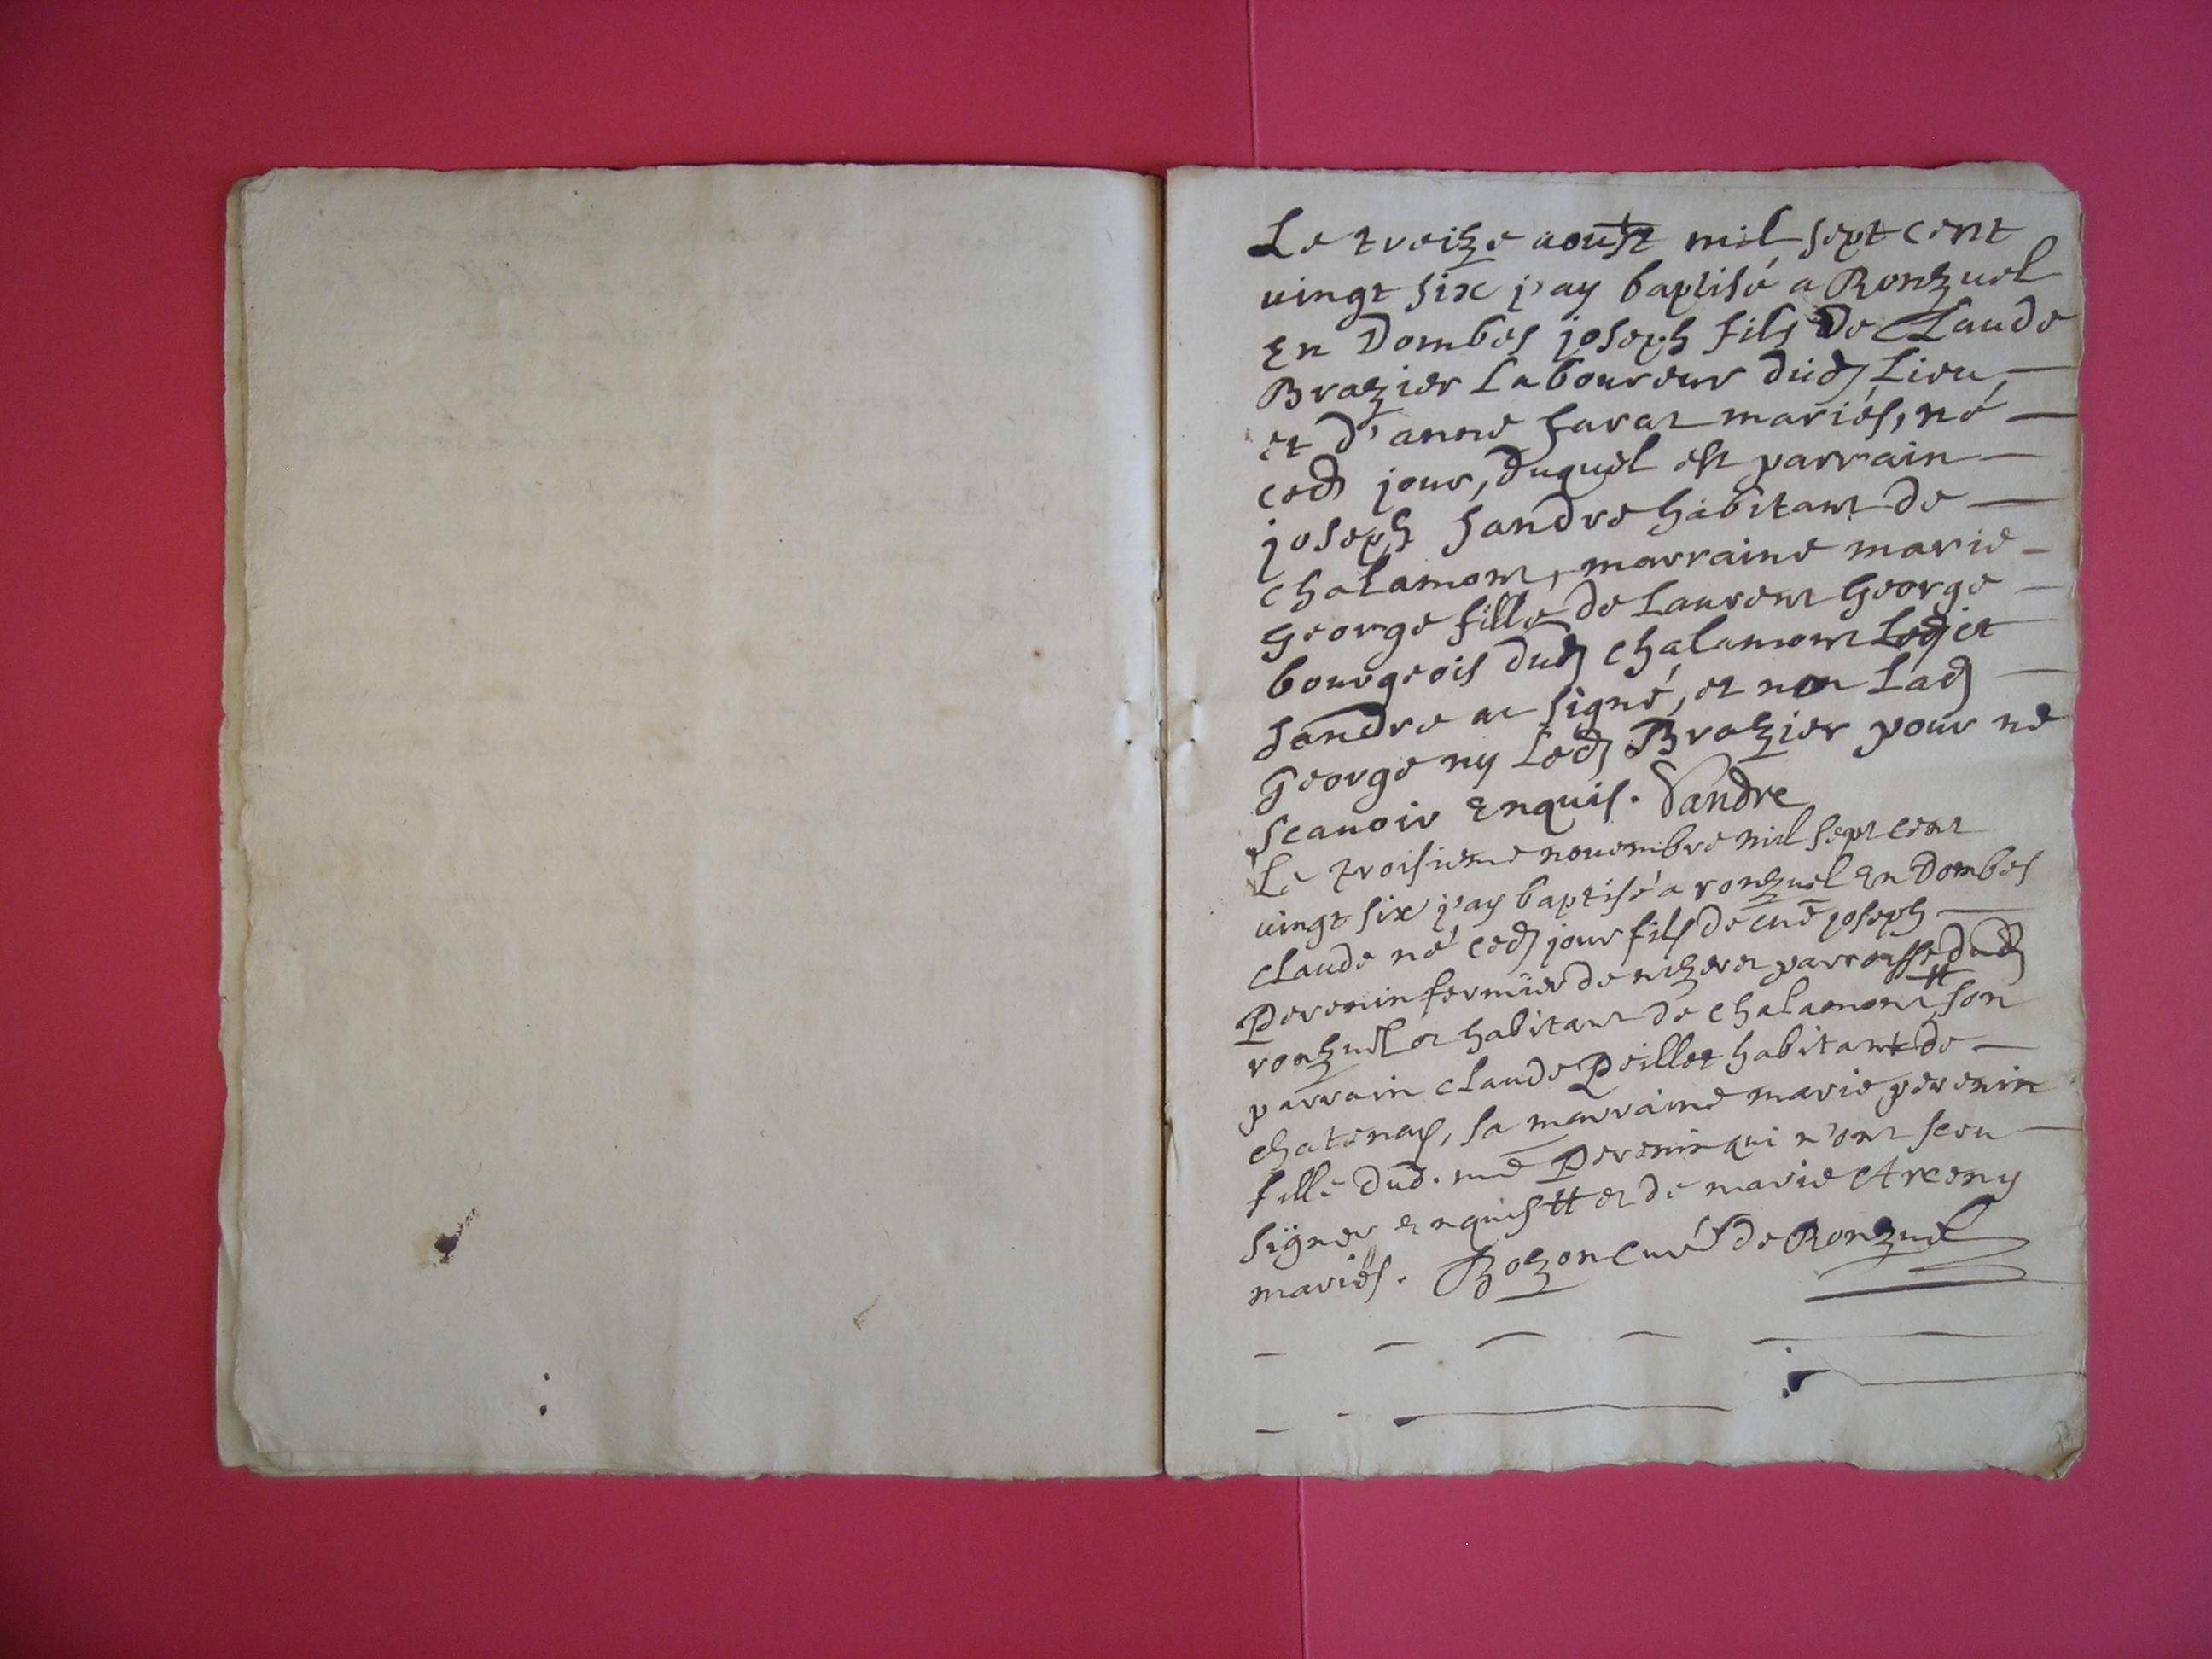 Le treize aoust mil sept cent
uingt six j'ay baptisé a Ronzuel
En Dombes joseph fils De Claude
Brazier Laboureur dud Lieu,
et d'anne favat mariés, né
ced jour, duquel est parrain
joseph Sandre habitant de
chalamont, marraine marie
George fille de Laurent George
bourgeois dud chalamont Led et
Sandre a signé, et non Lad
George ny Led Brazier pour ne
scauoir Enquis. Sandre
Le troisieme nouembre mil sept cent
uingt six j'ay baptisé a ronzuel En Dombes
claude né ced jour fils de me joseph
Perenin fermier de parroisse dud
ronzuel et habitant de chalamont # son
parrain claude Peillet habitant de
chatenay, sa marraine marie perenin
fille dud. me Perenin qui n'ont sceu
signer enquis # et de marie Arceny
mariés. Bozon Curé de Ronzuel